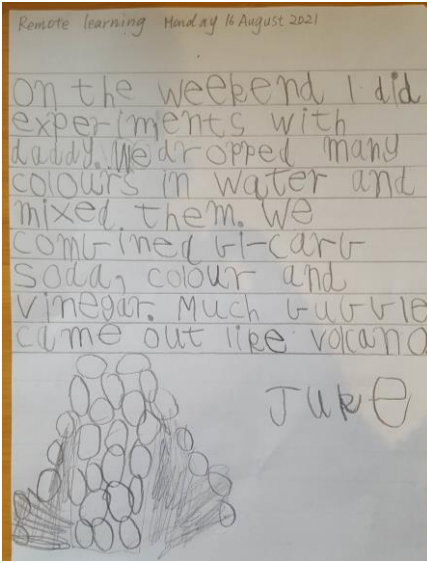 Remote learning Monday 16 August 2021
On the weekend I did
experiments with
daddy. We dropped many
colours in water and
mixed them. We
combined bi-carb
soda, colour and
vinegar. Much bubble
came out like volcano
Juke